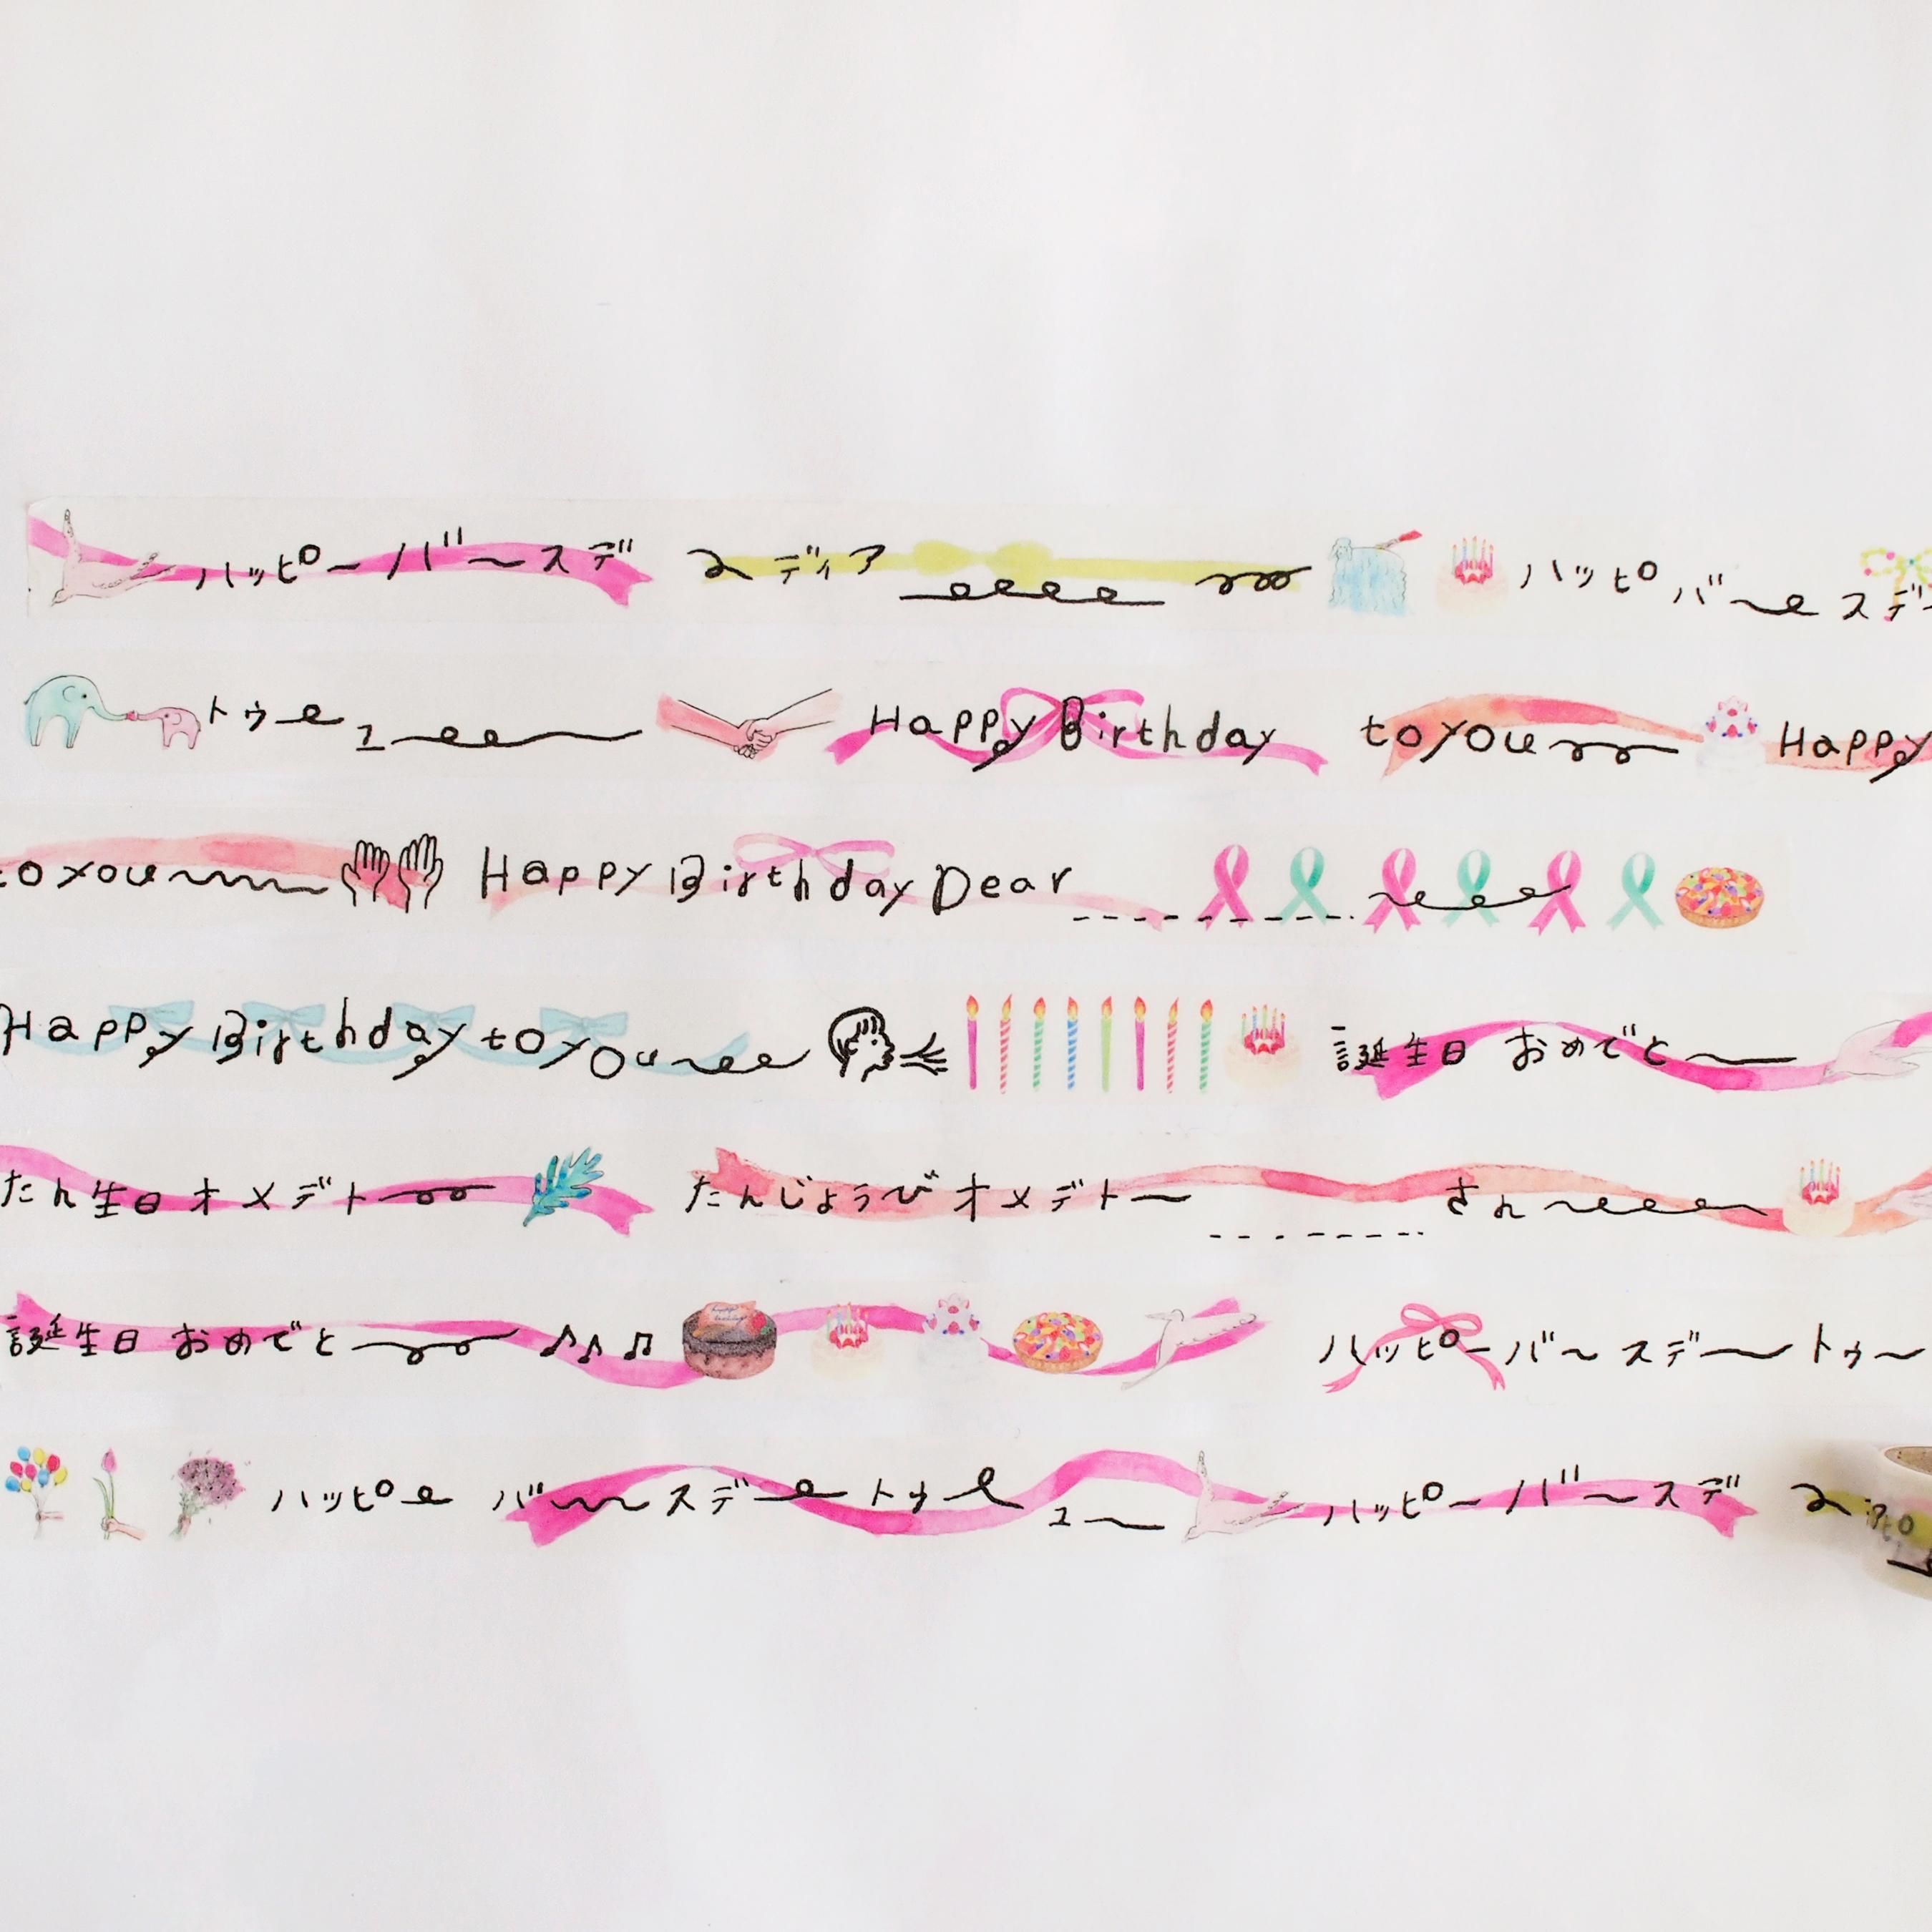 ハッピー バースデ ディア ハッピ バースデ
トゥ ユー Happy Birthday to you Happy
to you Happy Birthday Dear
Happy Birthday to you 誕生日 おめでと
たん生日 オメデト たんじょうび オメデトー さん
誕生日 おめでと ハッピー バースデー トゥー
ハッピ バースデ トゥ ユー ハッピー バースデ